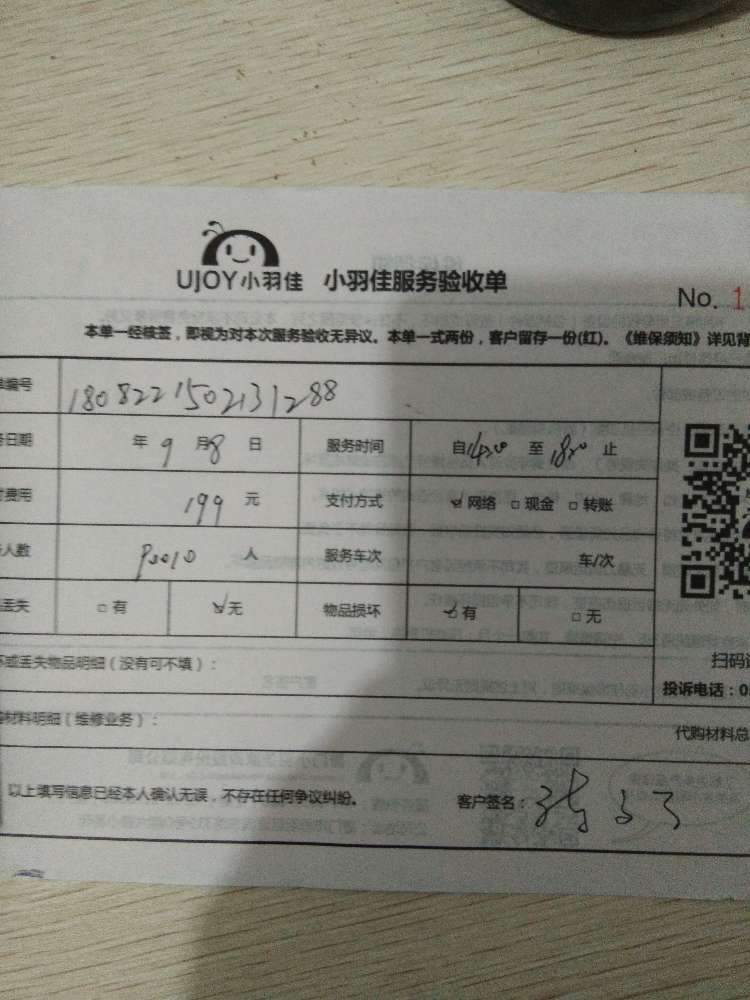 UJOY小羽佳 小羽佳服务验收单
No. 1
本单一经核签，即视为对本次服务验收无异议。本单一式两份，客户留存一份(红)。《维保须知》详见背
单编号 1808221502131288
日期 年 9 月 8 日 服务时间 自 14:00 至 18:00 止
费用 199 元 支付方式 ☑网络 □现金 □转账
人数 人 服务车次 车/次
丢失 □有 ☑无 物品损坏 ☑有 □无
坏或丢失物品明细（没有可不填）： 扫码
投诉电话：05
材料明细（维修业务）： 代购材料总
以上填写信息已经本人确认无误，不存在任何争议纠纷。 客户签名：